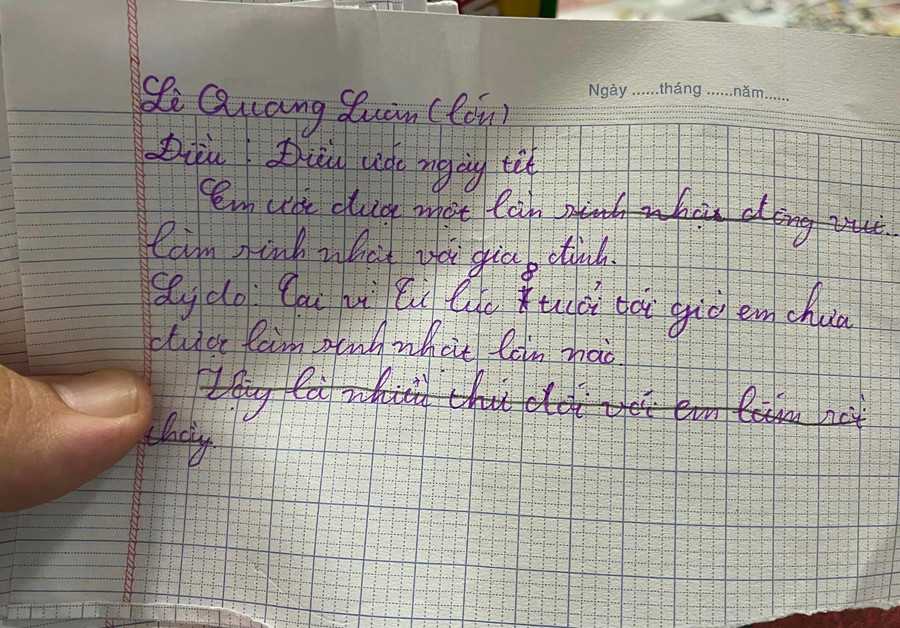 Ngày ......tháng ......năm......
Lê Quang Luân (lớn)
Điều : Điều ước ngày tết
Em ước được một lần sinh nhật đông vui..
làm sinh nhật với gia đình.
Lý do: Tại vì từ lúc 8 tuổi tới giờ em chưa
được làm sinh nhật lần nào.
Vậy là nhiều thứ đối với em lắm rồi
thầy.